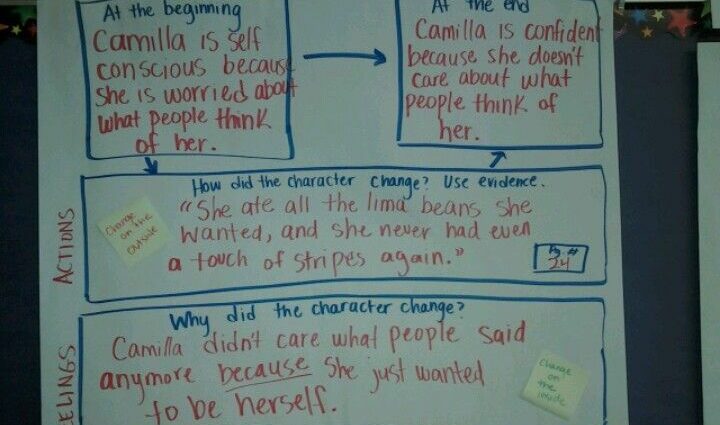 At the beginning
Camilla is self
conscious because
she is worried about
what people think
of her.
At the end
Camilla is confident
because she doesn't
care about what
people think of
her.
ACTIONS
How did the character change? Use evidence.
"She ate all the lima beans she
wanted, and she never had even
a touch of stripes again."
Change
on the
outside
pg #
24
ELINGS
Why did the character change?
Camilla didn't care what people said
anymore because she just wanted
to be herself.
Change
on
the
inside